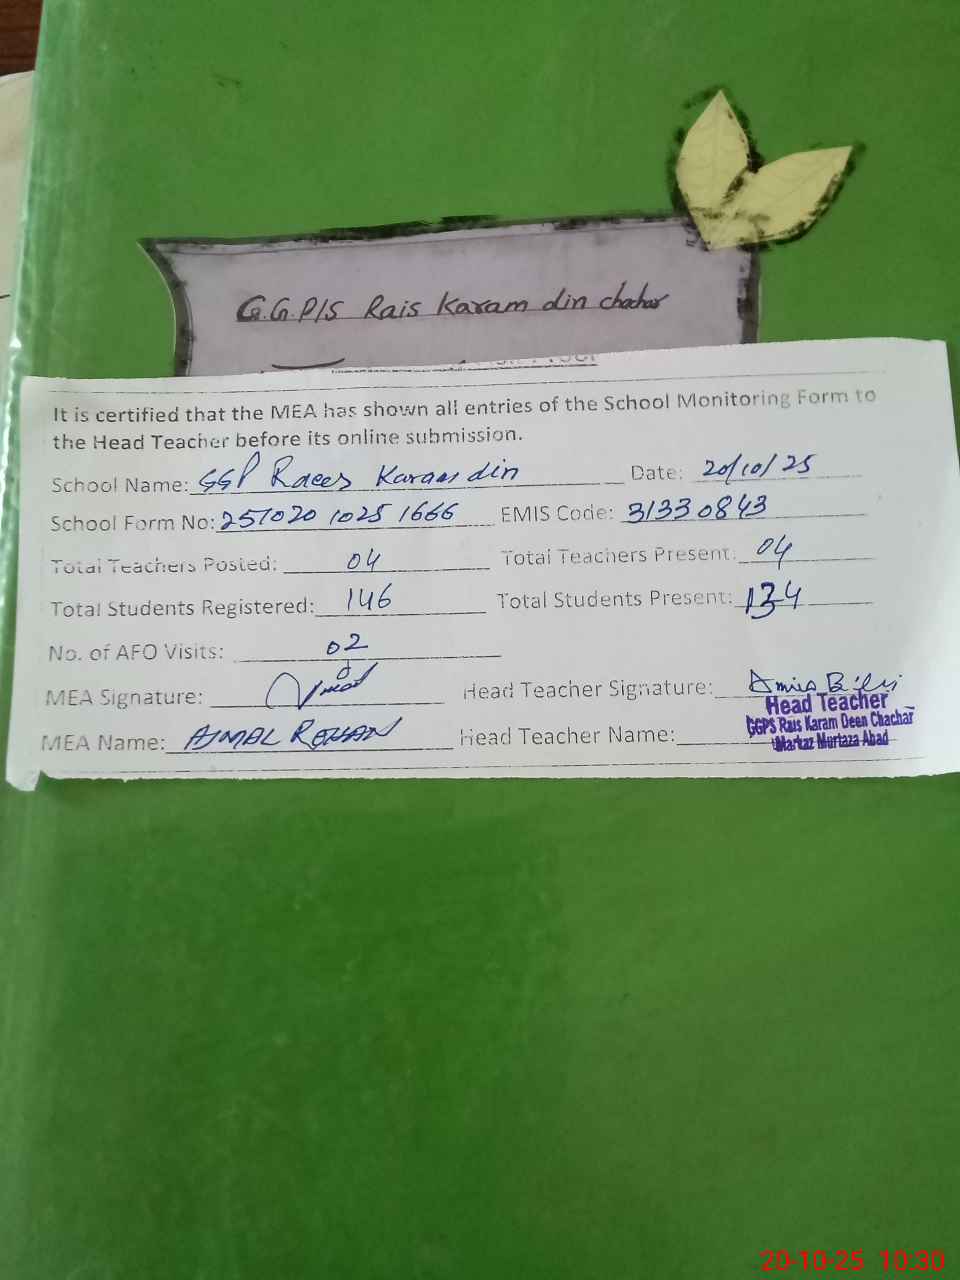 G.G.P/S Rais Karam din chachar
It is certified that the MEA has shown all entries of the School Monitoring Form to
the Head Teacher before its online submission.
School Name: GGP Raees Karam din Date: 20/10/25
School Form No: 251020 1025 1666 EMIS Code: 31330843
Total Teachers Posted: 04 Total Teachers Present: 04
Total Students Registered: 146 Total Students Present: 134
No. of AFO Visits: 02
MEA Signature: Head Teacher Signature:
Head Teacher
GGPS Rais Karam Deen Chachar
Markaz Murtaza Abad
MEA Name: AJMAL REHAN Head Teacher Name:
20-10-25 10:30